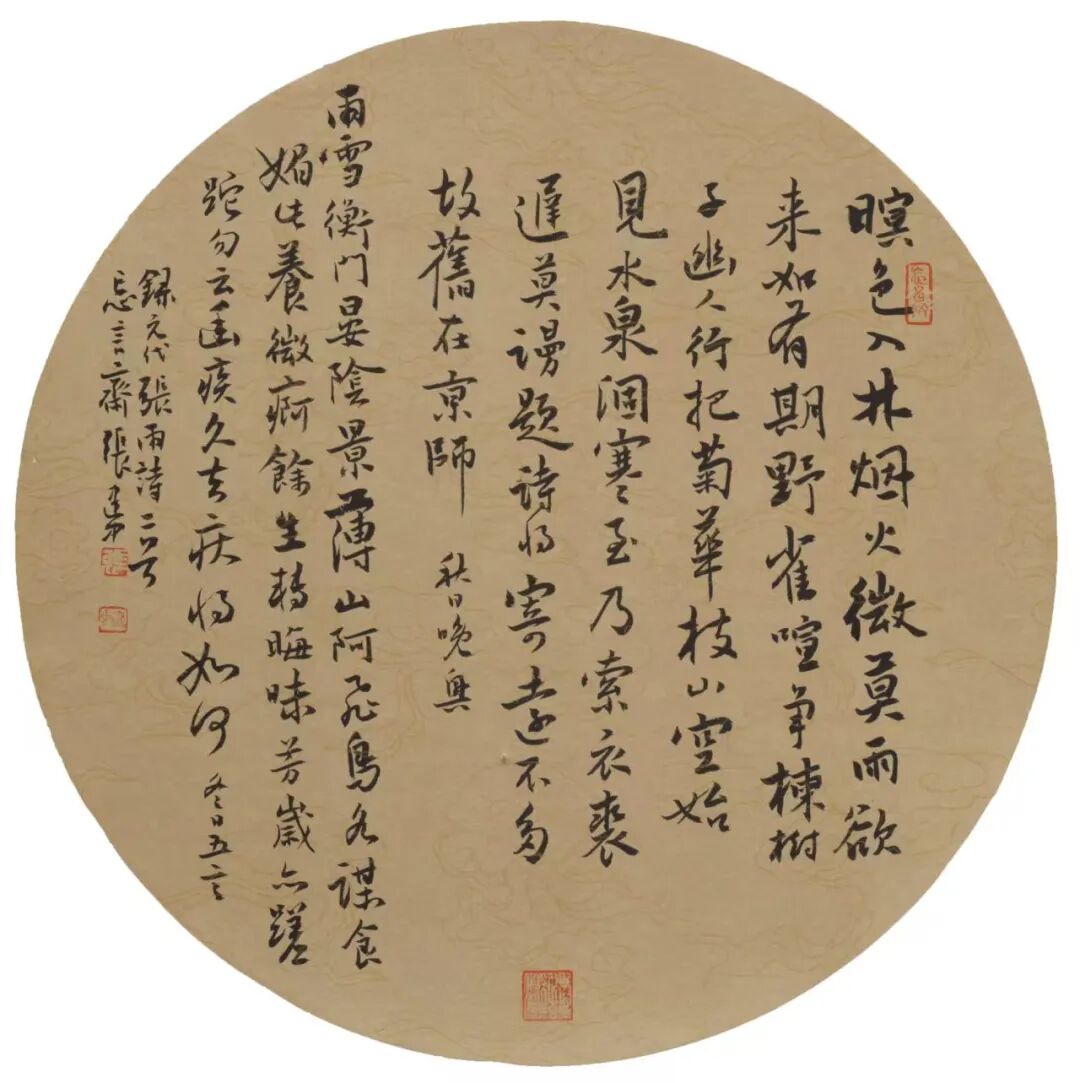 暝色入林烟火微莫雨欲
来如有期野雀喧争楝樹
子幽人行把菊華枝山空始
見水泉涸寒至乃索衣裘
遲莫謾題詩将寄遠不多
故舊在京師 秋日晚興
雨雪衡門晏陰景薄山阿飛鳥各謀食
媚此養微痾餘生轉晦昧芳歲亦蹉
跎勿云疾久去疾将如何 冬日五言
錄元代張雨詩二首
忘言齋張